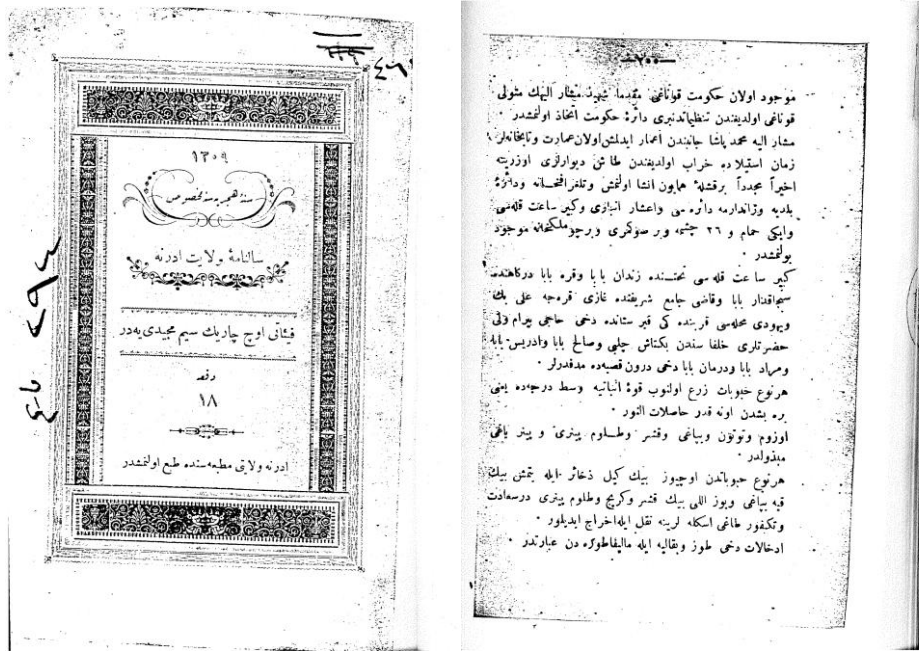 ٤٦
١٣٠٩
سنهٔ هجريه سنه مخصوص
سالنامهٔ ولايت ادرنه
فيئاتى اوچ چاريك سيم مجيدى يه در
دفعه
١٨
ادرنه ولايتى مطبعه سنده طبع اولنمشدر
٢٠٠
موجود اولان حكومت قوناغى مقدما شهيد مشار اليهك متولى
قوناغى اولديغندن تنظيماتدنبرى دائرهٔ حكومت اتخاذ اولنمشدر ٠
مشار اليه محمد پاشا جانبندن اعمار ايدلمش اولان عمارت وتابخانه لر
زمان استيلاده خراب اولديغندن طاش ديوارلرى اوزرينه
اخيراً مجدداً برقشلهٔ همايون انشا اولنمش وتلغرافخانه ودائرهٔ
بلديه وژاندارمه دائره سى واعشار انبارى وكبير ساعت قله سى
وايكى حمام و ٢٦ چشمه وبر موجود
بولنمشدر ٠
كبير ساعت قله سى تحتنده زندان بابا وقره بابا دركاهنده
سنجاقدار بابا وقاضى جامع شريفنده غازى قره جه على بك
ويهودى محله سى قربنده كى قبرستانده دخى حاجى بيرام ولى
حضرتلرى خلفا سندن بكتاش چلبى وصالح بابا وادريس بابا
ومراد بابا ودرمان بابا دخى درون قصبه ده مدفندرلر ٠
هرنوع حبوبات زرع اولنوب قوهٔ انباتيه وسط درجه ده يعنى
بره بشدن اونه قدر حاصلات النور ٠
اوزوم وتوتون ويپاغى وقشر وطلوم پينرى و پينر ياغى
مبذولدر ٠
هرنوع حبوباتدن اوچيوز بيك كيل ذخائر ايله يتمش بيك
قيه يپاغى ويوز اللى بيك قشر وكريج وطلوم پينرى درسعادت
وتكفور طاغى اسكله لرينه نقل ايله اخراج ايديلور ٠
ادخالات دخى طوز وبقاليه ايله مانيفاطوره دن عبارتدر ٠